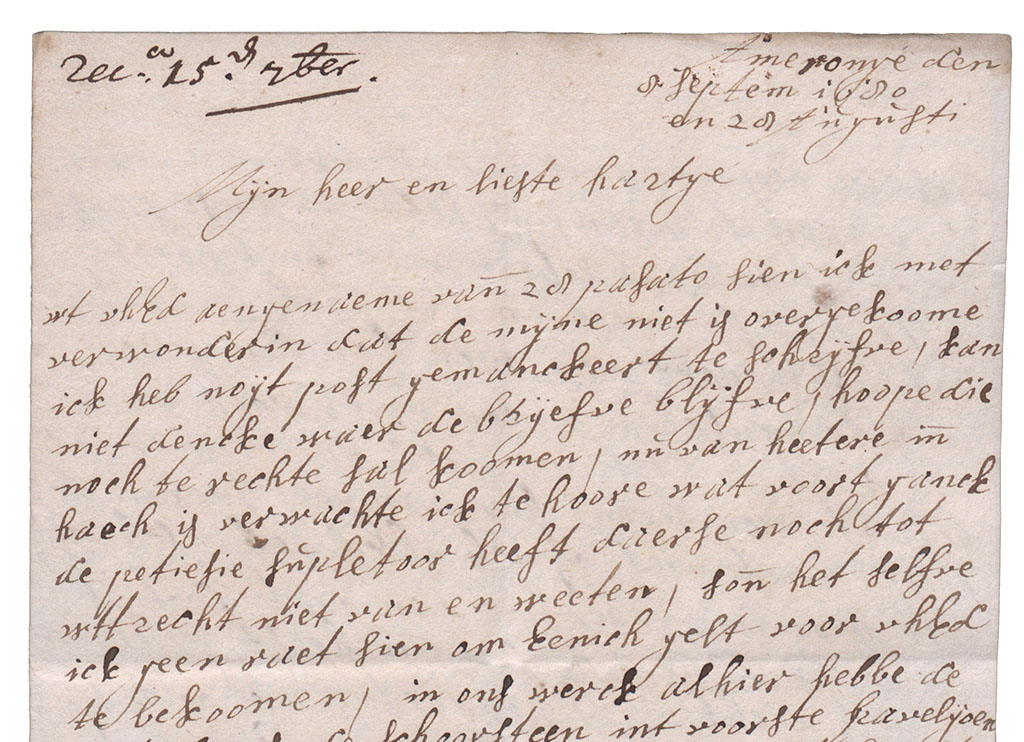 Rec.a 15.d 7ber.
Ameronge den
8 septem 1680
en 28 Augusti
Mijn heer en liefste hartge
wt uhEd aengenaeme van 28 pasato sien ick met
verwonderin dat de mijne niet is overgekoome
ick heb noijt post gemanckeert te schrijfve, kan
niet dencke waer de brijefve blijfve, hoope die
noch te rechte sal koomen, nu van heetere in
haech is verwachte ick te hoore wat voort ganck
de petiesie supletoor heeft daerse noch tot
wttrecht niet van en weeten, son het selfve
ick geen raet sien om Eenich gelt voor uhEd
te bekoomen, in ons werck alhier hebbe de
schoorsteen int voorste paveljoen